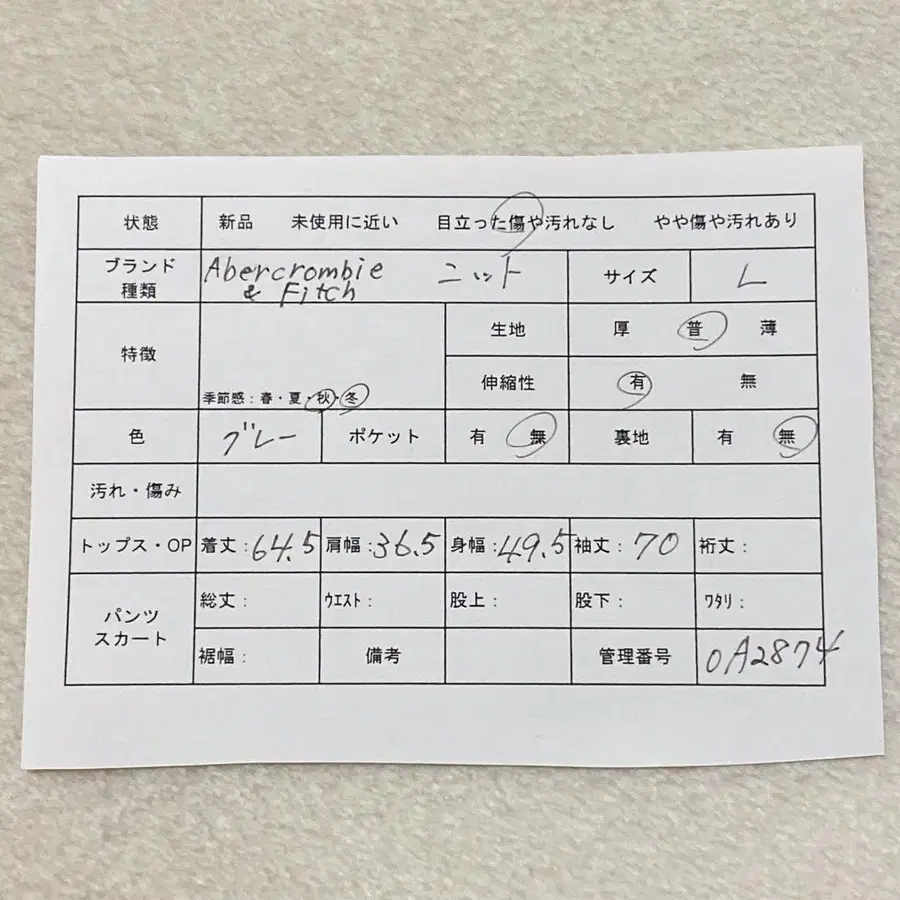 状態 新品 未使用に近い 目立った傷や汚れなし やや傷や汚れあり
ブランド 種類 Abercrombie & Fitch ニット サイズ L
特徴 季節感：春・夏・秋・冬 生地 厚 普 薄
伸縮性 有 無
色 グレー ポケット 有 無 裏地 有 無
汚れ・傷み
トップス・OP 着丈：64.5 肩幅：36.5 身幅：49.5 袖丈：70 裄丈：
パンツ スカート 総丈： ｳｴｽﾄ： 股上： 股下： ﾜﾀﾘ：
裾幅： 備考 管理番号 0A2874